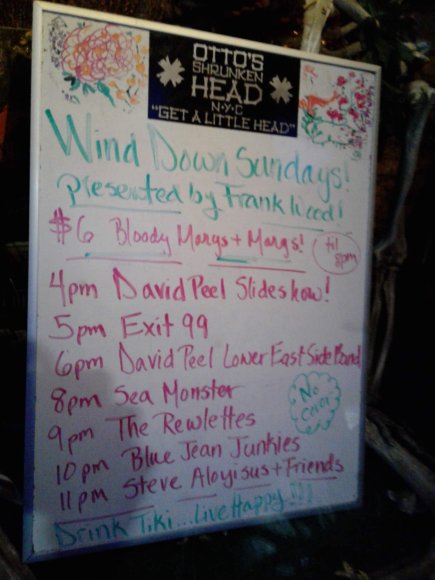 OTTO'S
SHRUNKEN
HEAD
N·Y·C
"GET A LITTLE HEAD"
Wind Down Sundays!
presented by Frank Wood!
$6 Bloody Marys + Margs!
til 8pm
4pm David Peel Slideshow!
5pm Exit 99
6pm David Peel Lower East Side Band
8pm Sea Monster
No Cover
9pm The Rewlettes
10pm Blue Jean Junkies
11pm Steve Aloyisus + Friends
Drink Tiki...Live Happy!!!